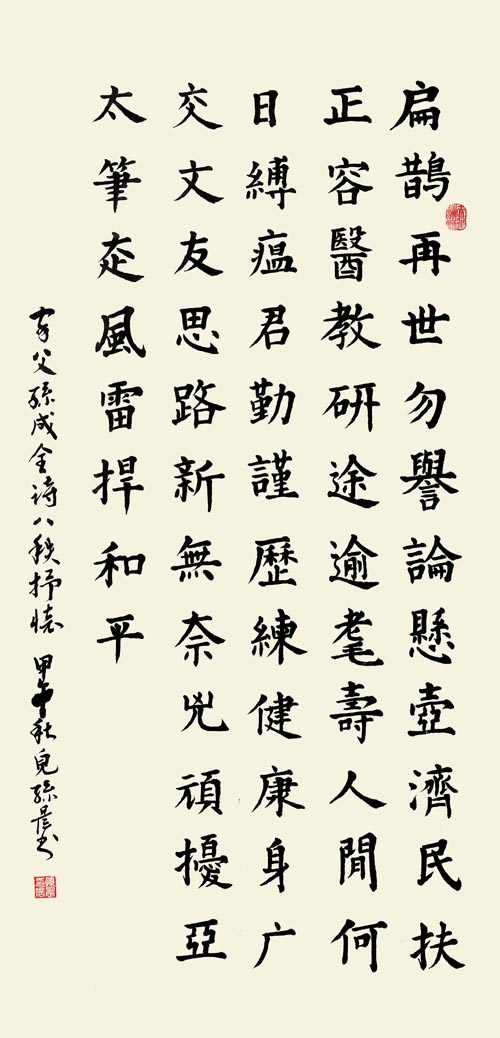 扁鹊再世勿譽論懸壺濟民扶
正容醫教研途逾耄壽人間何
日縛瘟君勤謹歷練健康身广
交文友思路新無奈兇頑擾亞
太筆走風雷捍和平
家父孫成全诗八秩抒懷 甲午秋兒孫晨书